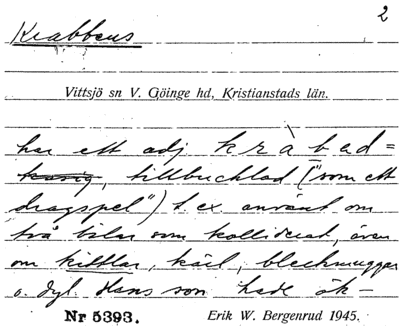 2
Krabbens
Vittsjö sn V. Göinge hd, Kristianstads län.
har ett adj. kràbad=
, tillbucklad ("som ett
dragspel") t.ex. använt om
två bilar som kolliderat, även
om kittlar, kärl, bleckmuggar
o. dyl. Hans son hade åk-
Nr 5393. Erik W. Bergenrud 1945.